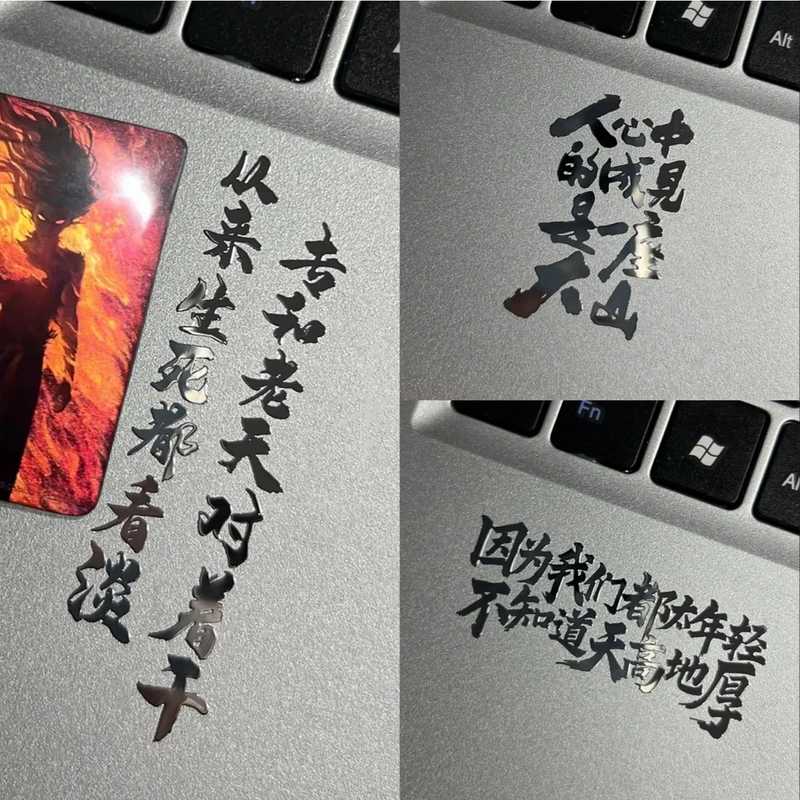 从来生死都看淡
专和老天对着干
Alt
人心中
的成见
是一座
大山
Fn
因为我们都太年轻
不知道天高地厚